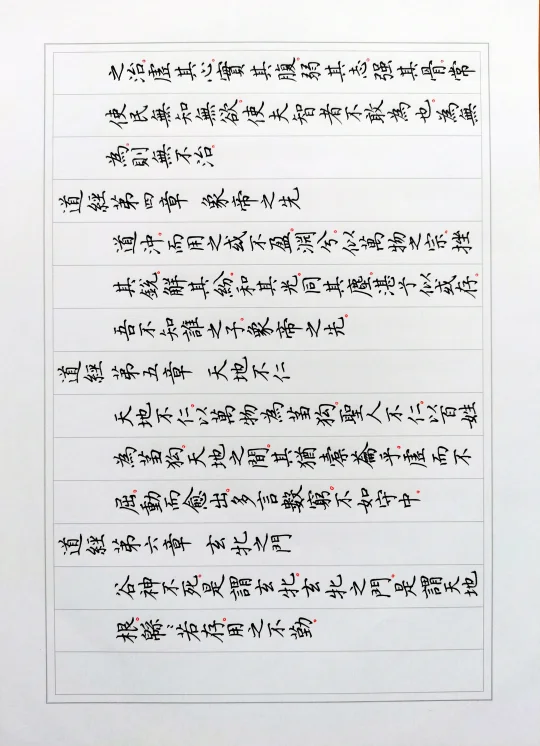 之治。虛其心。實其腹。弱其志。强其骨。常
使民無知無欲。使夫智者不敢為也。為無
為。則無不治。
道經第四章 象帝之先
道沖。而用之或不盈。淵兮。似萬物之宗。挫
其銳。解其紛。和其光。同其塵。湛兮似或存。
吾不知誰之子。象帝之先。
道經第五章 天地不仁
天地不仁。以萬物為芻狗。聖人不仁。以百姓
為芻狗。天地之間。其猶橐籥乎。虛而不
屈。動而愈出。多言數窮。不如守中。
道經第六章 玄牝之門
谷神不死。是謂玄牝。玄牝之門。是謂天地
根。緜〻若存。用之不勤。